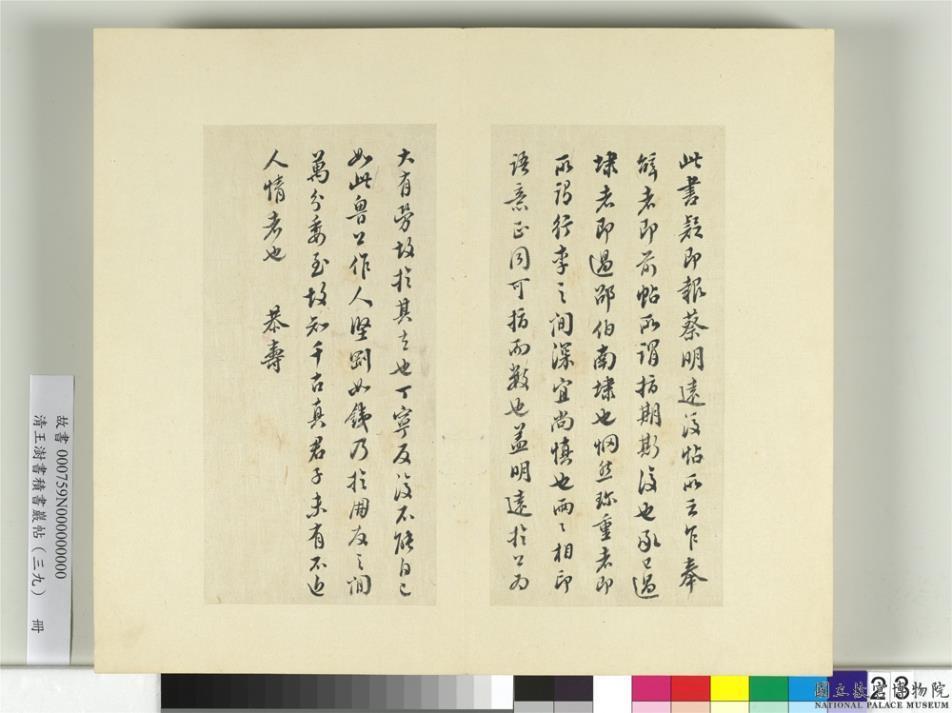 此書疑即報蔡明遠後帖所云乍奉
辭者即前帖所謂指期斯復也承已過
埭者即過邵伯南埭也惘然珍重者即
所謂行李之間深宜尚慎也兩〻相印
語意正同可指而數也蓋明遠於公為
大有勞故於其去也丁寧反復不能自已
如此魯公作人堅剛如鐵乃於朋友之間
萬分委至故知千古真君子未有不近
人情者也 恭壽
故書 000759N000000000
清王澍書積書巖帖(三九) 冊
23
國立故宮博物院
NATIONAL PALACE MUSEUM